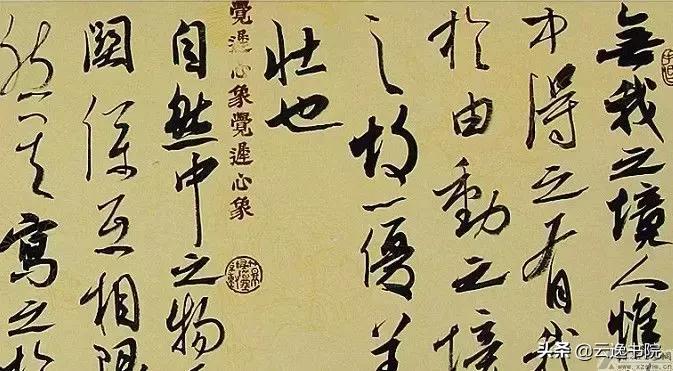 無我之境人惟
中得之有我
於由動之
之故一優美
壯也
覺遲心象覺遲心象
自然中之物
關係互相限
然其寫之於
头条 @云逸书院